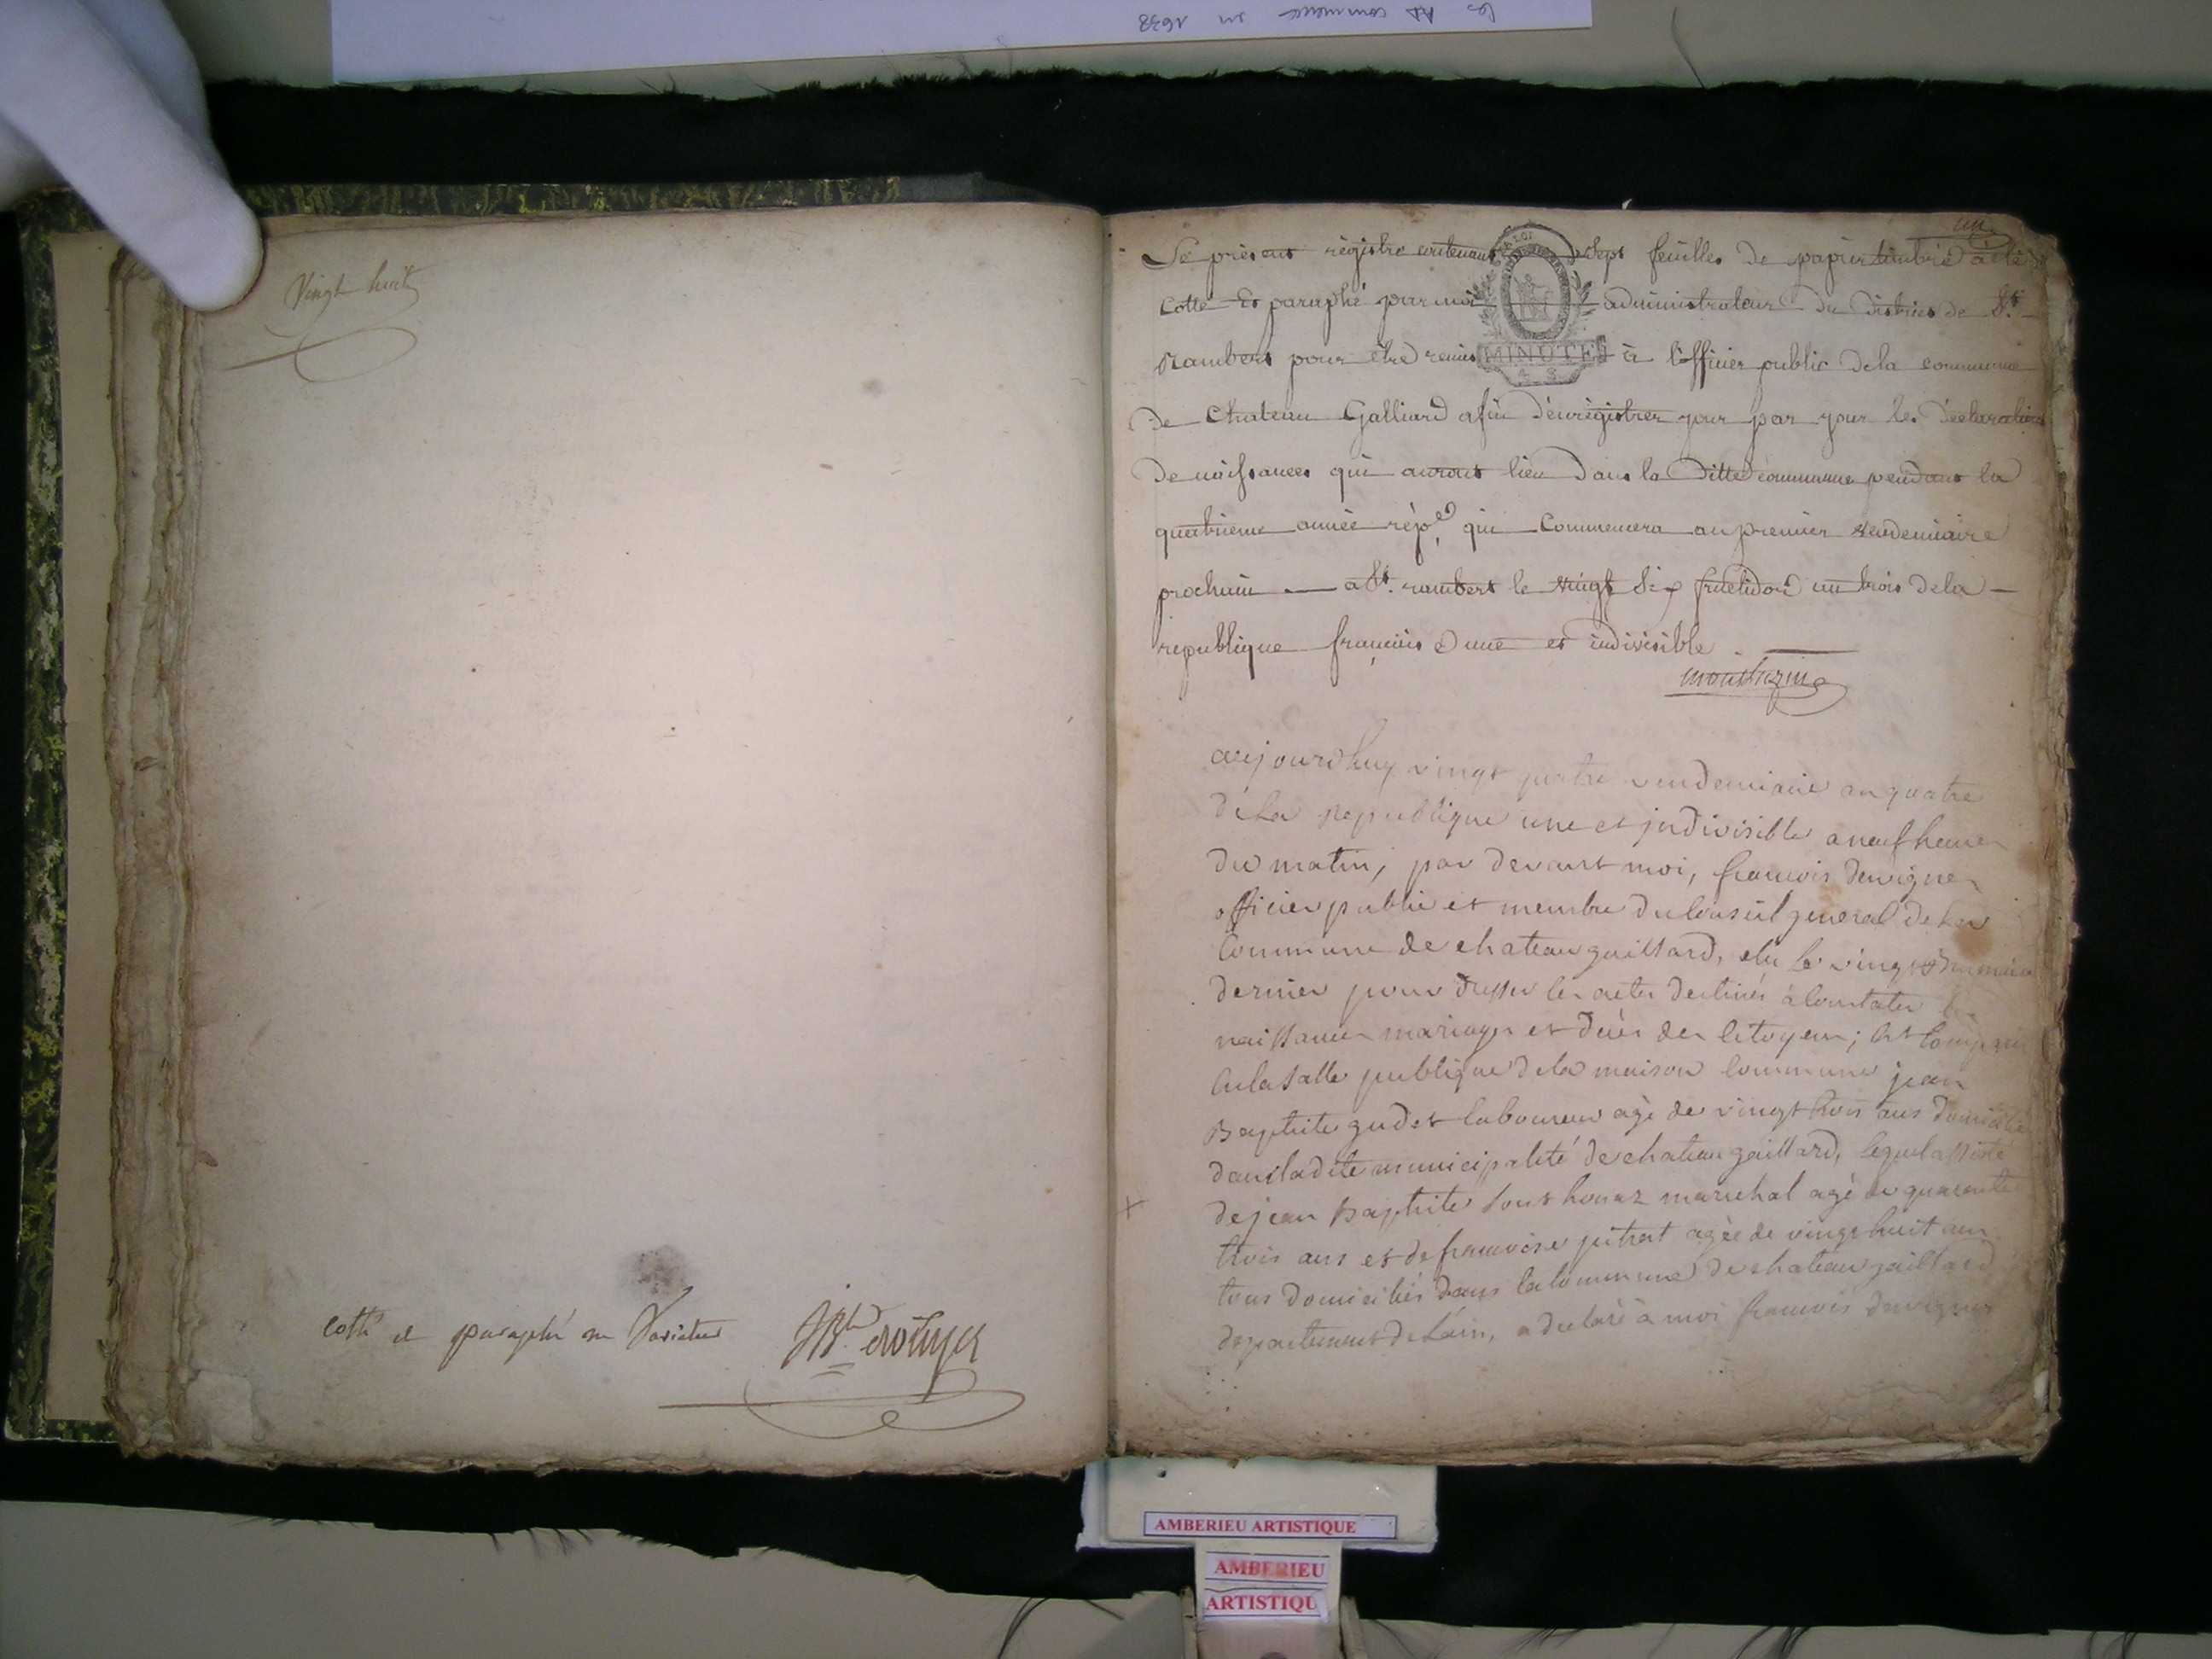 les AD commence en 1638
Vingt huit
cotté et paraphé ne varietur
un
Le présent régistre contenant sept feuilles de papier timbré à été
cotté et paraphé par moi administrateur du district de St.
Rambert pour etre remis à l'officier public de la commune
MINUTE
de Chateau Galliard afin d'enrégistrer jour par jour les déclarations
de naissances qui auront lieu dans la ditte commune pendant la
quatrieme année rép.e qui commencera au premier vendemiaire
prochain — a St. rambert le vingt six fructidor an trois de la —
republique francaise une et indivisible
aujourdhuy vingt quatre vendemiaire an quatre
de La republique une et jndivisible a neuf heures
du matin, par devant moi, francois
officier public et membre du Conseil general de La
Commune de chateau gaillard, elu le vingt
dernier pour dresser les actes destinés à Constater les
naissances mariages et décès des Citoyens; est Comparu
en la salle publique de la maison Commune jean
Baptiste gudet laboureur agé de vingt trois ans domicilié
dans ladite municipalité de chateau gaillard, lequel assisté
de jean Baptiste marechal agé de quarante
trois ans et de francoise pitrat agée de vingt huit ans
tous domiciliés dans la Commune de chateau gaillard
departement de Lain, a declaré à moi francois
AMBERIEU ARTISTIQUE
AMBERIEU
ARTISTIQU